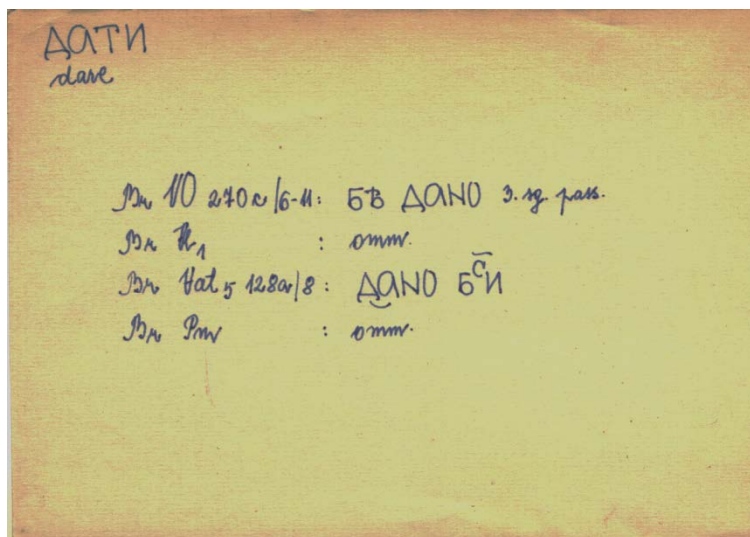 ДАТИ
dare
Br VO 270c/6-11: БѢ ДАНО 3. sg. pass.
Br N₁ : omm.
Br Vat₅ 128a/8: ДАНО БСИ
Br Pm : omm.